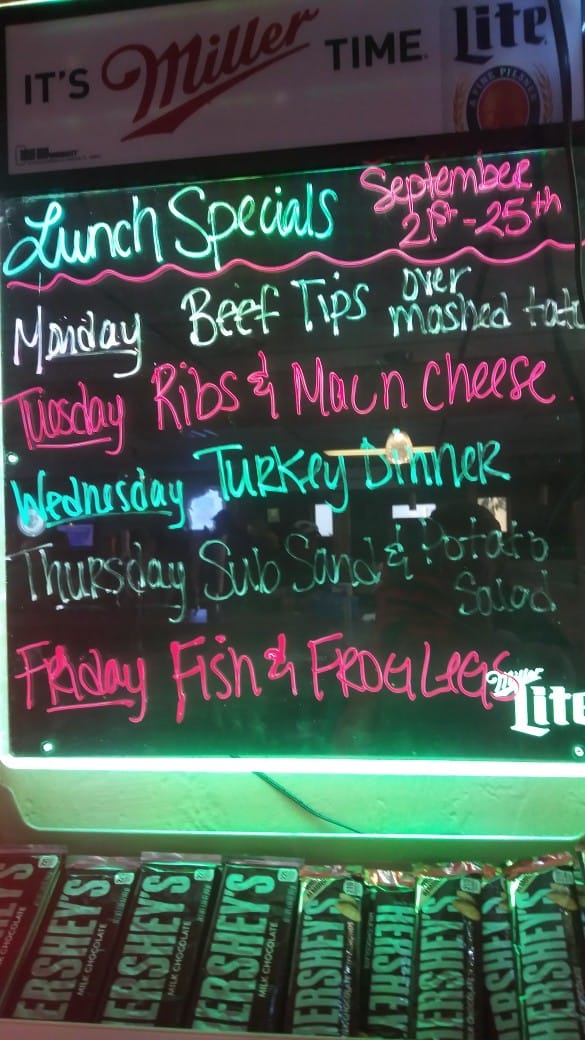 IT'S Miller TIME. Lite
A FINE PILSNER
Lunch Specials September
21st - 25th
Monday Beef Tips over
mashed tat
Tuesday Ribs & Mac n Cheese
Wednesday Turkey Dinner
Thursday Sub Sand & Potato
Salad
Friday Fish & Frog Legs
Miller
Lite
HERSHEY'S
MILK CHOCOLATE
HERSHEY'S
MILK CHOCOLATE
HERSHEY'S
MILK CHOCOLATE
HERSHEY'S
MILK CHOCOLATE
HERSHEY'S
HERSHEY'S
HERSHEY'S
HERSHEY'S
HERSHEY'S